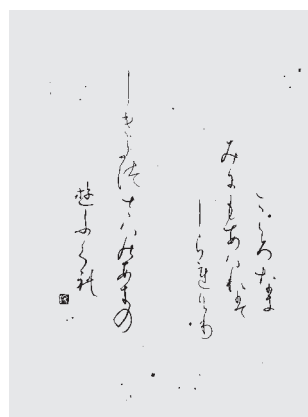 こゝろなき
みにもあはれは
しられけり
しきたつさはのあきの
遊ふくれ